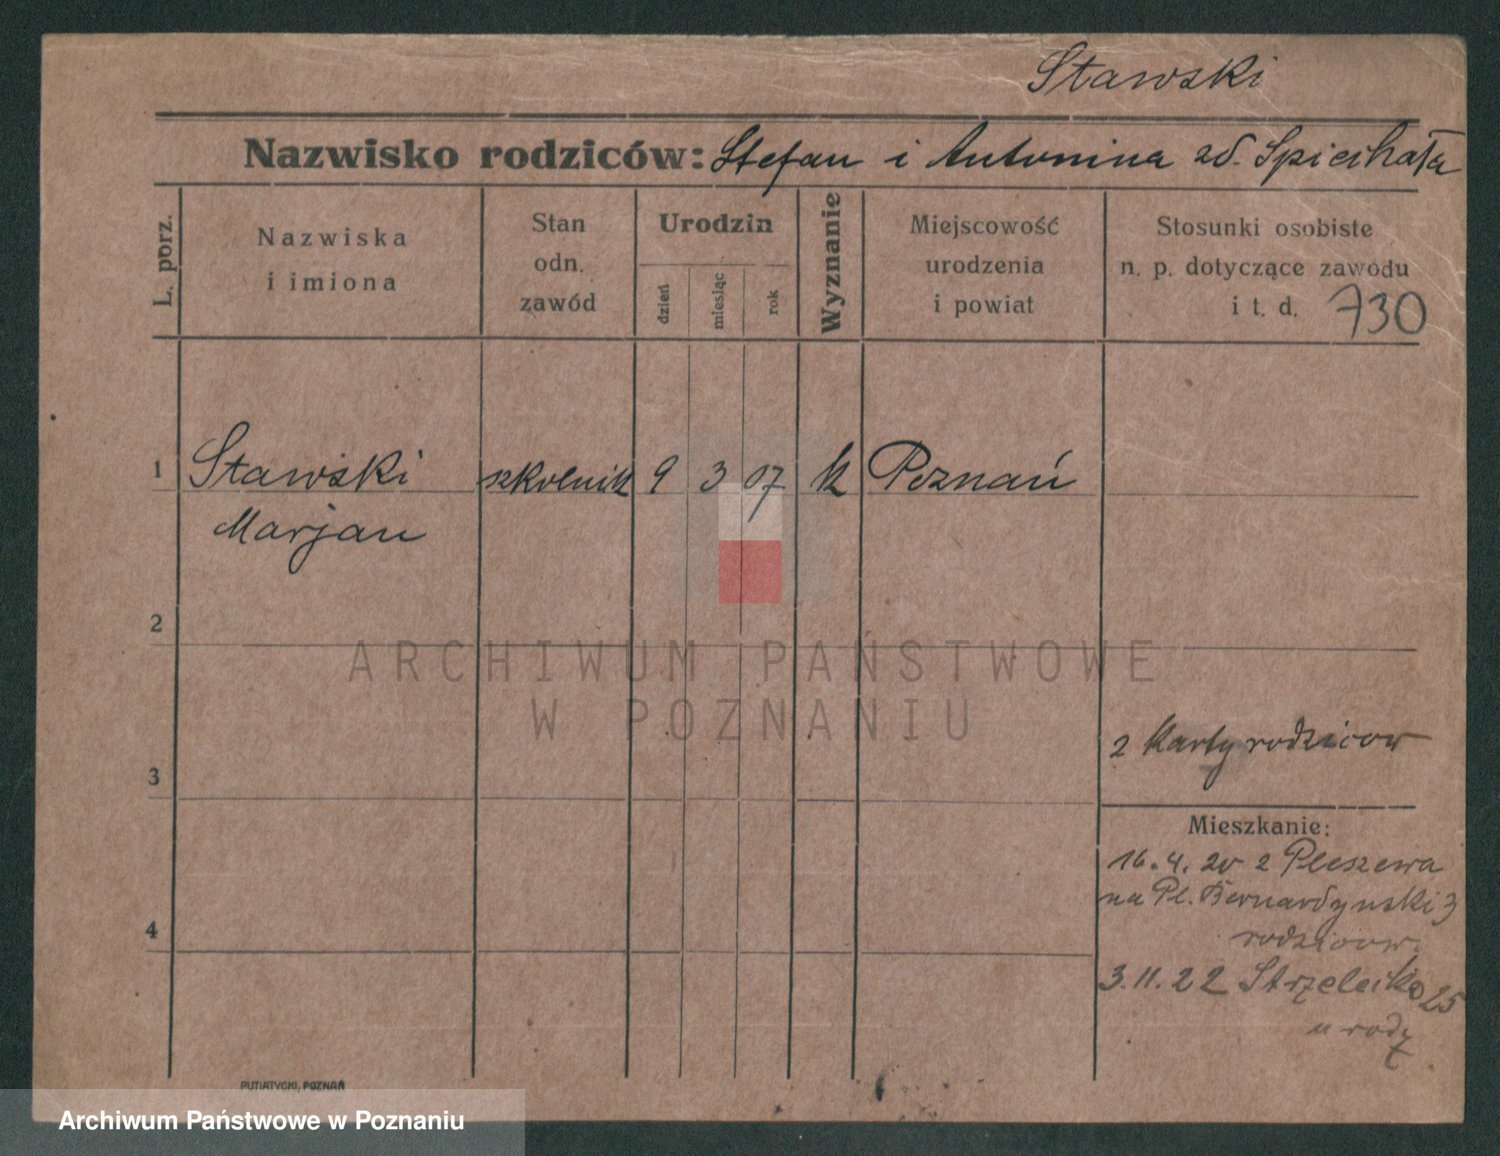 Stawski
Nazwisko rodziców: Stefan i Antonina zd. Spiechała
L. porz.
Nazwiska
i imiona
Stan
odn.
zawód
Urodzin
dzień
miesiąc
rok
Wyznanie
Miejscowość
urodzenia
i powiat
Stosunki osobiste
n. p. dotyczące zawodu
i t. d. 730
1 Stawski szkolnik 9 3 07 k Poznań
Marjan
2
ARCHIWUM PAŃSTWOWE
W POZNANIU
z karty rodziców
3
Mieszkanie:
16.4.20 z Pleszewa
na Pl. Bernardyński 3
rodziców
4
3.11.22 Strzelecka 25
u rodz
PUTIATYCKI, POZNAŃ
Archiwum Państwowe w Poznaniu